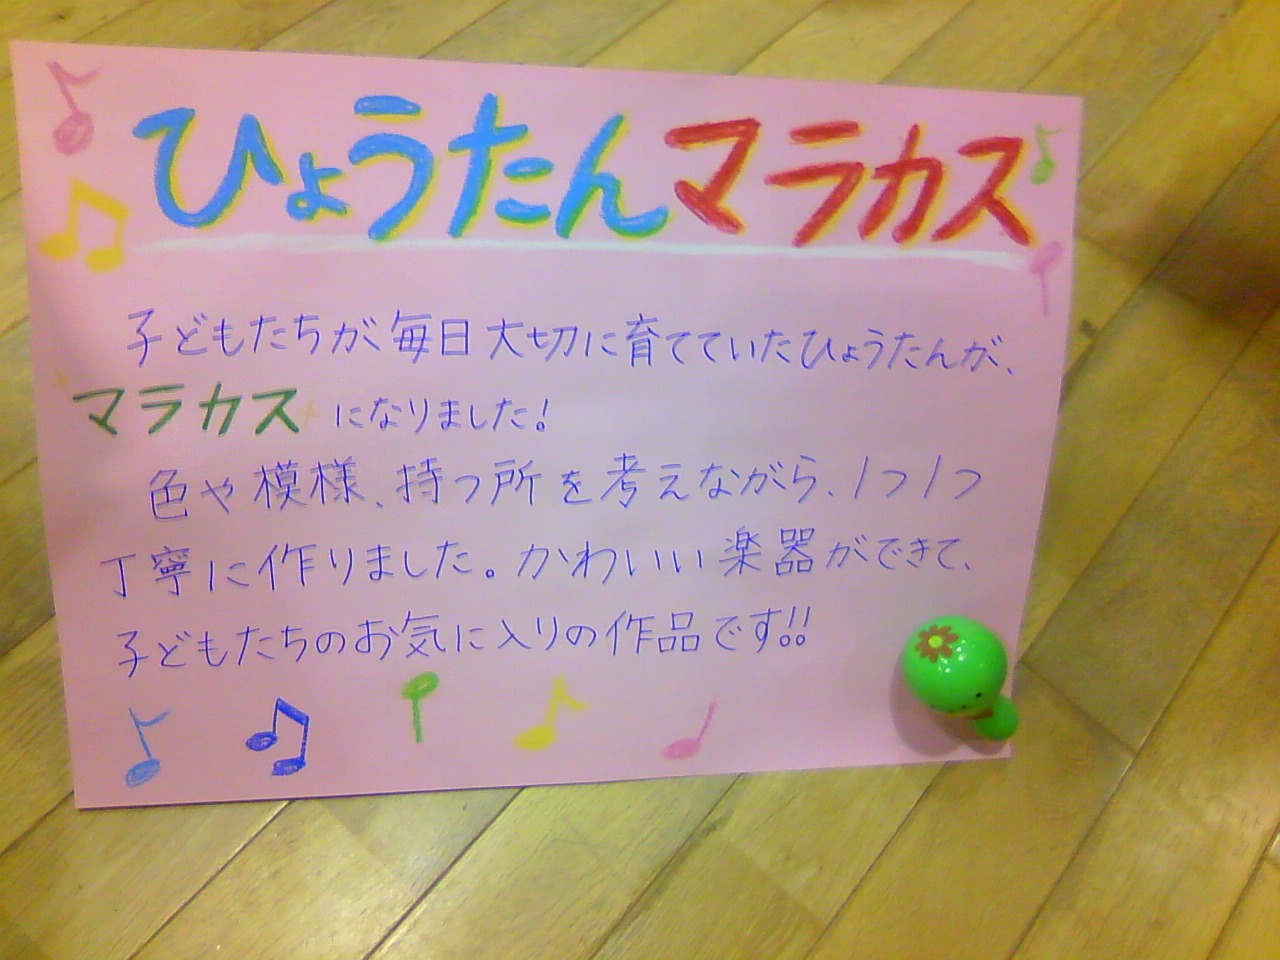 ひょうたんマラカス
子どもたちが毎日大切に育てていたひょうたんが、
マラカスになりました！
色や模様、持つ所を考えながら、1つ1つ
丁寧に作りました。かわいい楽器ができて、
子どもたちのお気に入りの作品です!!